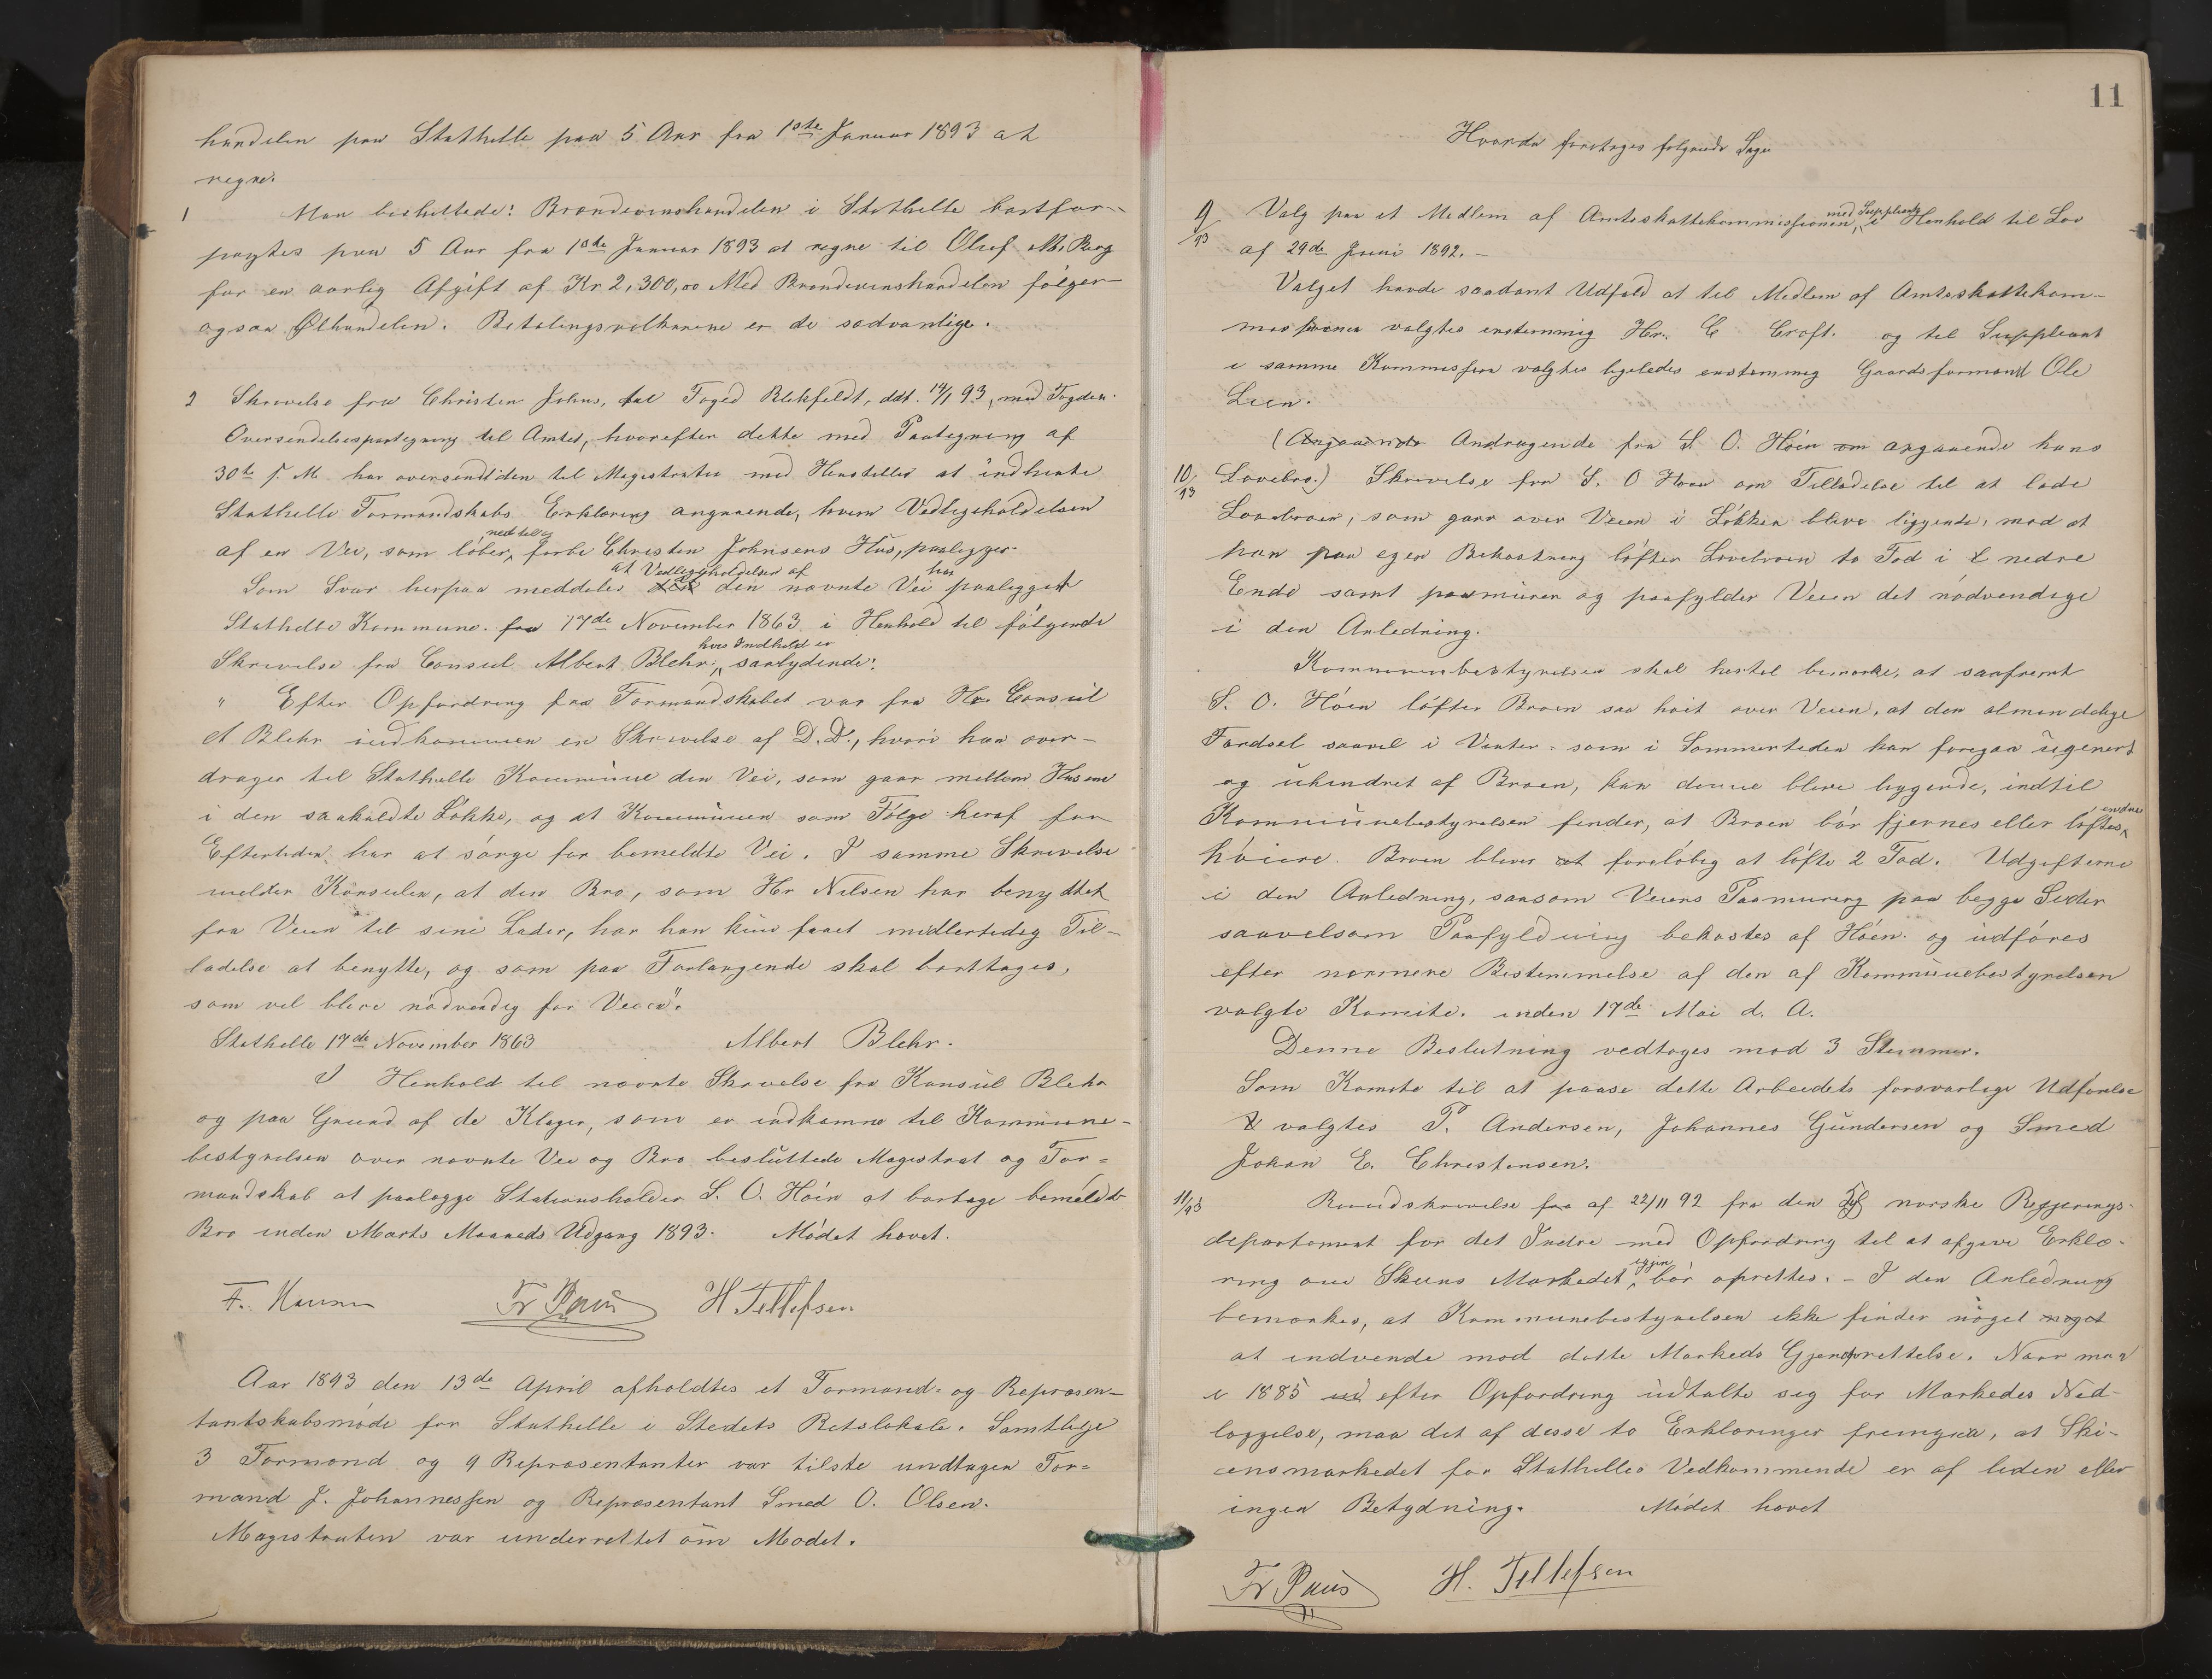 handelen paa Stathelle paa 5 Aar fra 1ste Januar 1893 at
regne.
1 Man besluttede: Brændevinshandelen i Stathelle bortfor-
pagtes paa 5 Aar fra 1ste Januar 1893 at regne til Oluf M. Berg
for en aarlig Afgift af Kr 2,300,00 Med Brændevinshandelen følger
ogsaa Ølhandelen. Betalingsvilkarene er de sædvanlige.
2 Skrivelse fra Christen Johns, til Foged Blehfeldt, ddt. 14/1 93, med Fogden
Oversendelsespaategning til Amtet, hvorefter dette med Paategning af
30te s. M. har oversendt den til Magistraten med Henstillen at indhente
Stathelle Formandskabs Erklæring angaaende, hvem Vedligeholdelsen
af en Vei, som løber, ned til og forbi Christen Johnsens Hus, paaligger.
Som Svar herpaa meddeles at Vedligeholdelsen af den nævnte Vei har paaligget
Stathelle Kommune fra 17de November 1863 i Henhold til følgende
Skrivelse fra Consul Albert Blehr, hvis Indhold er saalydende:
" Efter Opfordring fra Formandskabet var fra Hr. Consul
A Blehr indkommen en Skrivelse af D.D., hvori han over-
drager til Stathelle Kommune den Vei, som gaar mellem Husene
i den saakaldte Løkke, og at Kommunen som Følge heraf for
Eftertiden har at sørge for bemeldte Vei. I samme Skrivelse
melder Konsulen, at den Bro, som Hr Nilsen har benyttet
fra Veien til sine Lader, har han kun faaet midlertidig Til-
ladelse at benytte, og som paa Forlangende skal borttages,
som vil blive nødvendig for Veien".
Stathelle 17de November 1863 Albert Blehr.
I Henhold til nævnte Skrivelse fra Konsul Blehr
og paa Grund af de Klager, som er indkomne til Kommune-
bestyrelsen over nævnte Vei og Bro besluttede Magistrat og For-
mandskab at paalægge Stationsholder S. O. Høen at borttage bemeldte
Bro inden Marts Maaneds Udgang 1893. Mødet hævet.
Fr Paus H Tellefsen
Aar 1893 den 13de April afholdtes et Formand- og Repræsen-
tantskabsmøde for Stathelle i Stedets Retslokale. Samtlige
3 Formænd og 9 Repræsentanter var tilste undtagen For-
mand J. Johannessen og Repræsentant Smed O. Olsen.
Magistraten var underrettet om Mødet.
11
Hvorda foretoges følgende Sager
9/93 Valg paa et Medlem af Amtsskattekommissionen, med Suppleant i Henhold til Lov
af 29de Juni 1892. -
Valget havde saadant Udfald at til Medlem af Amtsskattekom-
missionen valgtes enstemmig Hr. C Croft. og til Suppleant
i samme Kommission valgtes ligeledes enstemmig Gaardsformand Ole
Lien.
(Angaaende Andragende fra S. O. Høen om angaaende hans
10/93 Lovebro.) Skrivelse fra S. O Høen om Tilladelse til at lade
Laavebroen, som gaar over Veien i Løkken blive liggende, mod at
han paa egen Bekostning løfter Lovebroen to Fod i nedre
Ende samt paamurer og paafylder Veien det nødvendige
i den Anledning.
Kommunebestyrelsen skal hertil bemærke, at saafremt
S. O. Høen løfter Broen saa høit over Veien, at den almindelige
Færdsel saavel i Vinter- som i Sommertiden kan foregaa ugenert
og uhindret af Broen, kan denne blive liggende, indtil
Kommunebestyrelsen finder, at Broen bør fjernes eller løftes endnu
høiere. Broen bliver foreløbig at løfte 2 Fod. Udgifterne
i den Anledning, saasom Veiens Paamuring paa begge Sider
saavelsom Paafyldning bekostes af Høen og udføres
efter nærmere Bestemmelse af den af Kommunebestyrelsen
valgte Komite. inden 17de Mai d. A.
Denne Beslutning vedtoges mod 3 Stemmer.
Som Komite til at paase dette Arbeidets forsvarlige Udførelse
valgtes P. Andersen, Johannes Gundersen og Smed
Johan E. Christensen.
11/93 Rundskrivelse fra af 22/11 92 fra den norske Regjerings-
departement for det Indre med Opfordring til at afgive Erklæ-
ring om Skiens Markedet igjen bør oprettes. - I den Anledning
bemærkes, at Kommunebestyrelsen ikke finder noget noget
at indvende mod dette Markeds Gjenoprettelse. Naar man
i 1885 ud efter Opfordring udtalte sig for Markedes Ned-
læggelse, maa det af disse to Erklæringer fremgaa, at Ski-
ensmarkedet for Stathelles Vedkommende er af liden eller
ingen Betydning. Mødet hævet
Fr Paus H. Tellefsen